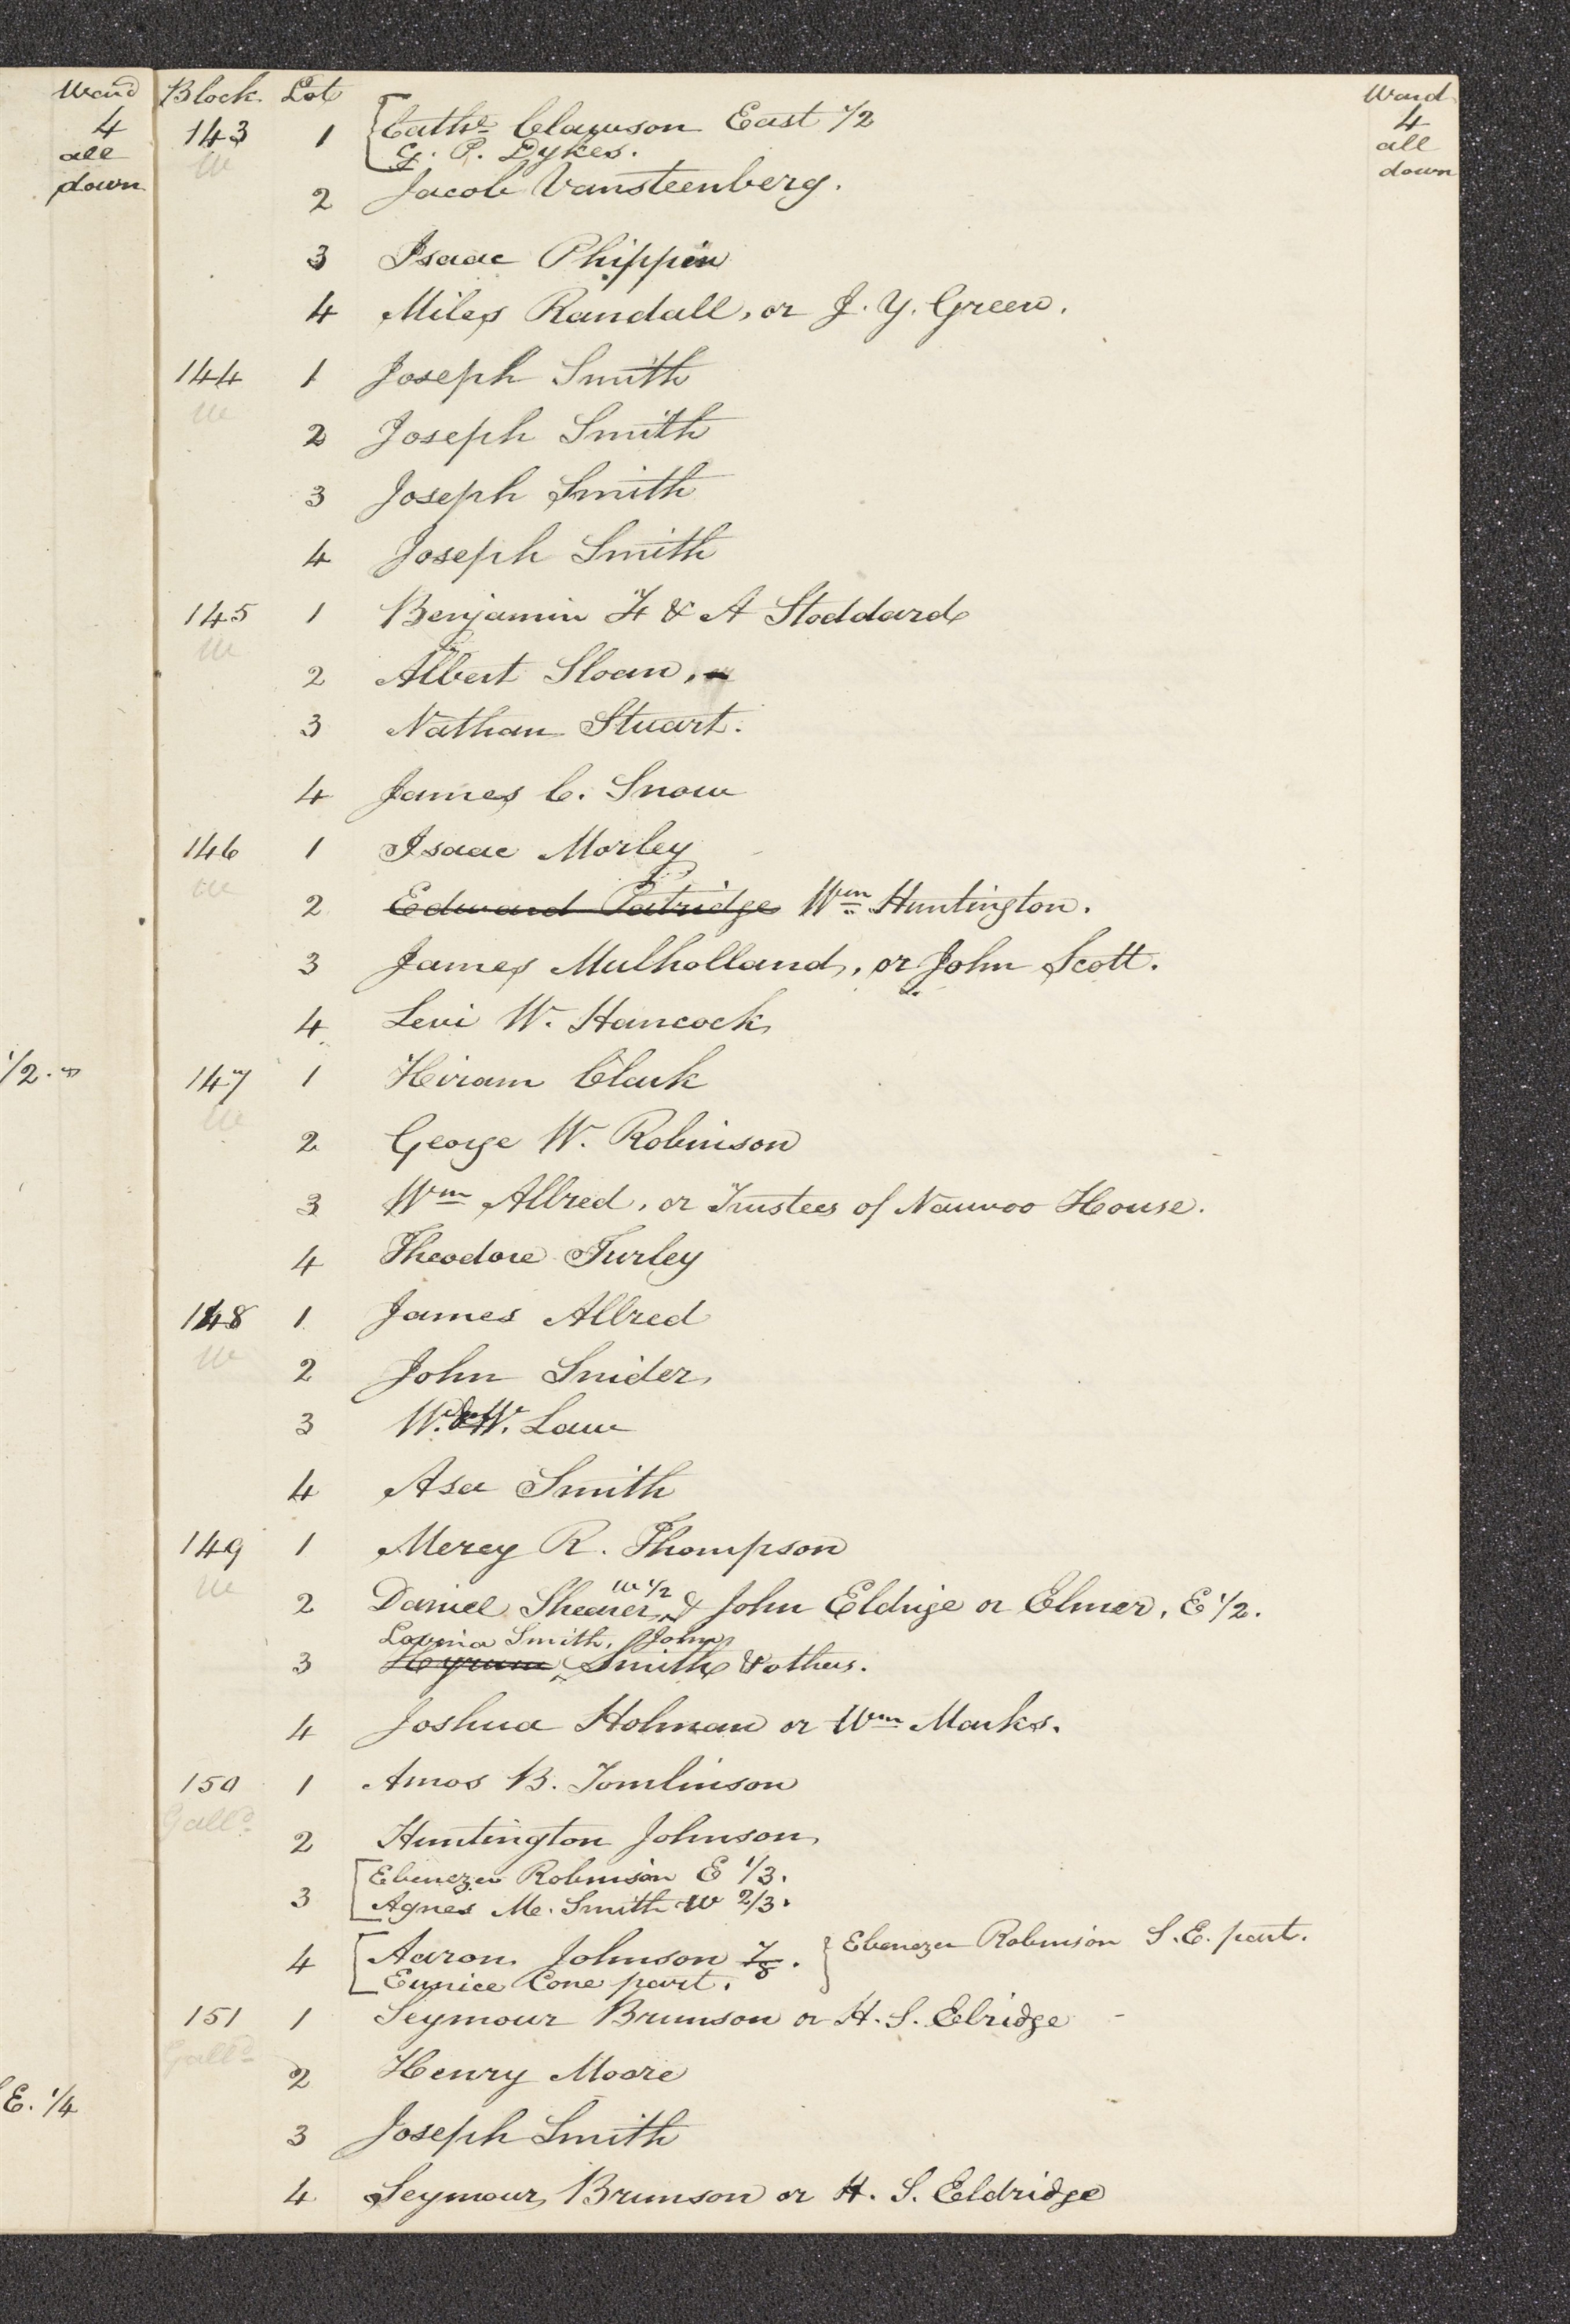 Ward Block. Lot Ward
4 143 1 Cathe. Clawson East 1/2 4
all W G. P. Dykes. all
down 2 Jacob Vansteenberg. down
3 Isaac Phippin
4 Miles Randall, or J. Y. Green.
144 1 Joseph Smith
W
2 Joseph Smith
3 Joseph Smith
4 Joseph Smith
145 1 Benjamin F & A Stoddard
W
2 Albert Sloan,
3 Nathan Stuart.
4 James C. Snow
146 1 Isaac Morley
W
2 Edward Patridge Wm Huntington.
3 James Mulholland, or John Scott.
4 Levi W. Hancock
1/2.
147 1 Hiram Clark
W
2 George W. Robinson
3 Wm Allred, or Trustees of Nauvoo House.
4 Theodore Turley
148 1 James Allred
W
2 John Snider,
3 W. & W. Law
4 Asa Smith
149 1 Mercy R. Thompson
W
2 Daniel Shearer W 1/2 & John Eldrige or Elmer, E 1/2.
Lovina Smith, John
3 Hyrum Smith & others.
4 Joshua Holman or Wm Marks.
150 1 Amos B. Tomlinson
Galld.
2 Huntington Johnson,
Ebenezer Robinson E 1/3.
3 Agnes M. Smith W 2/3.
4 Aaron Johnson 7/8. Ebenezer Robinson S.E. part.
Eunice Cone part.
151 1 Seymour Brunson or H. S. Elridge
Galld.
2 Henry Moore
E. 1/4
3 Joseph Smith
4 Seymour Brunson or H. S. Eldridge